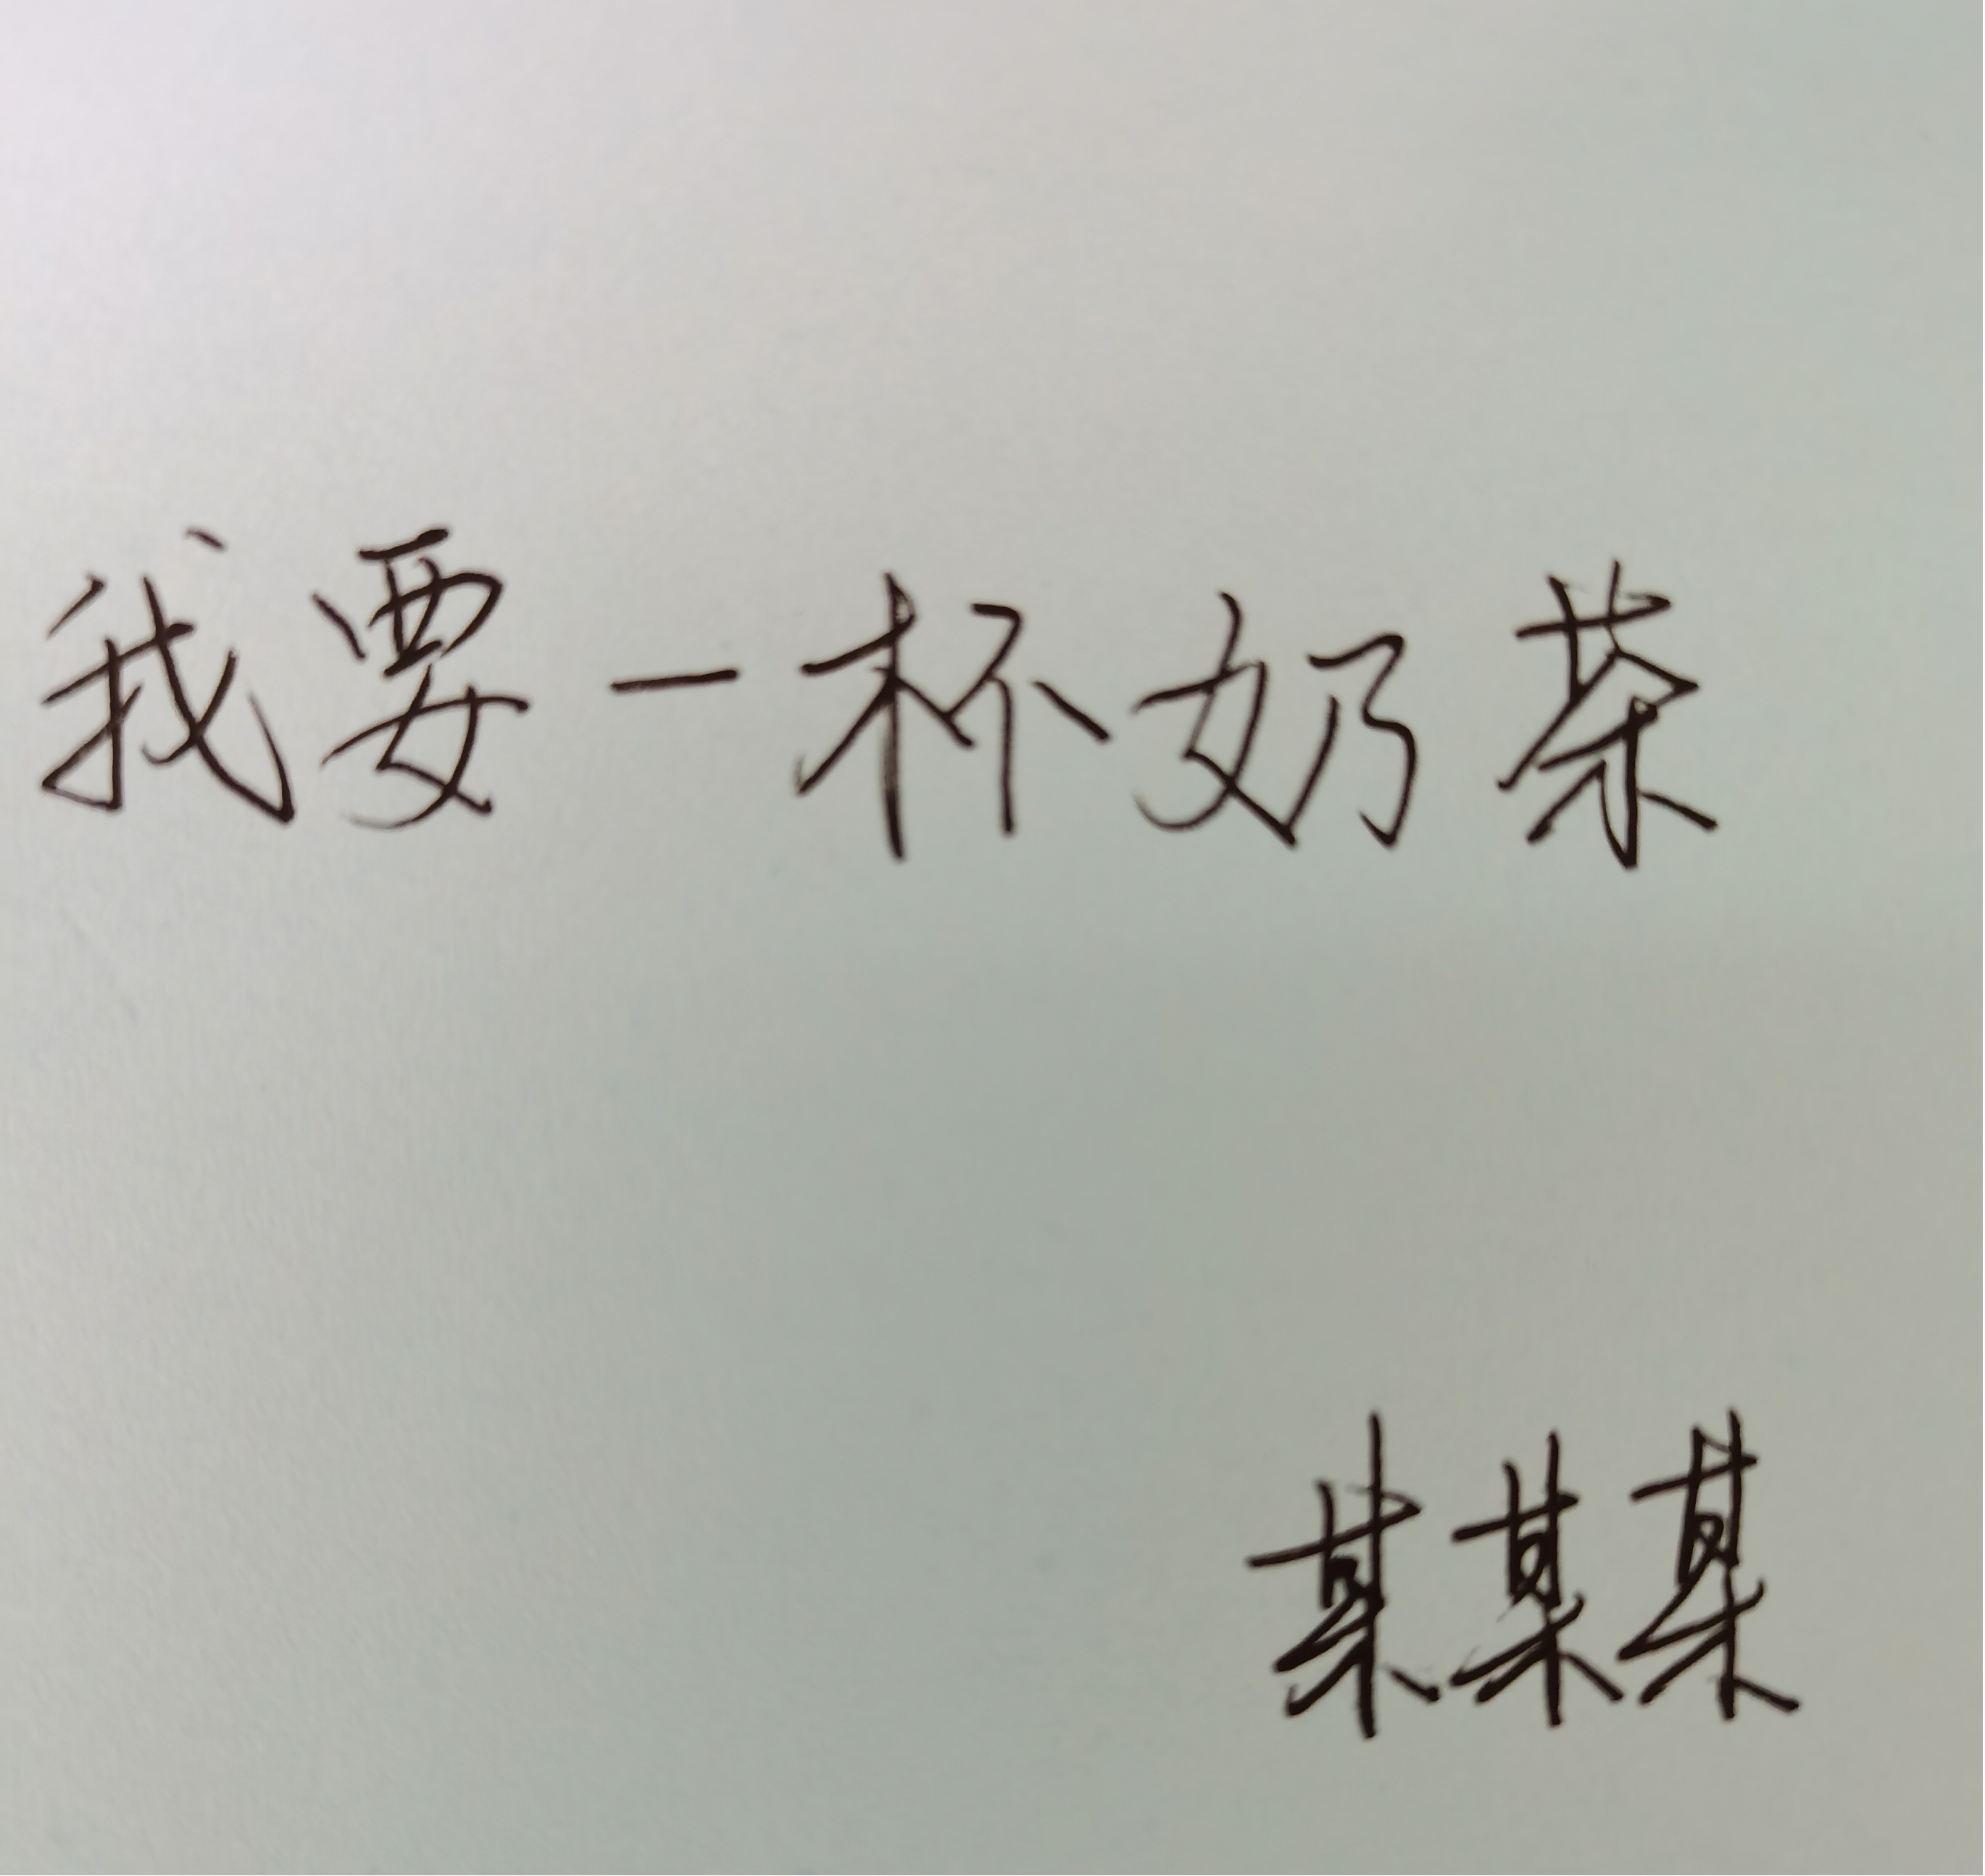 我要一杯奶茶
某某某